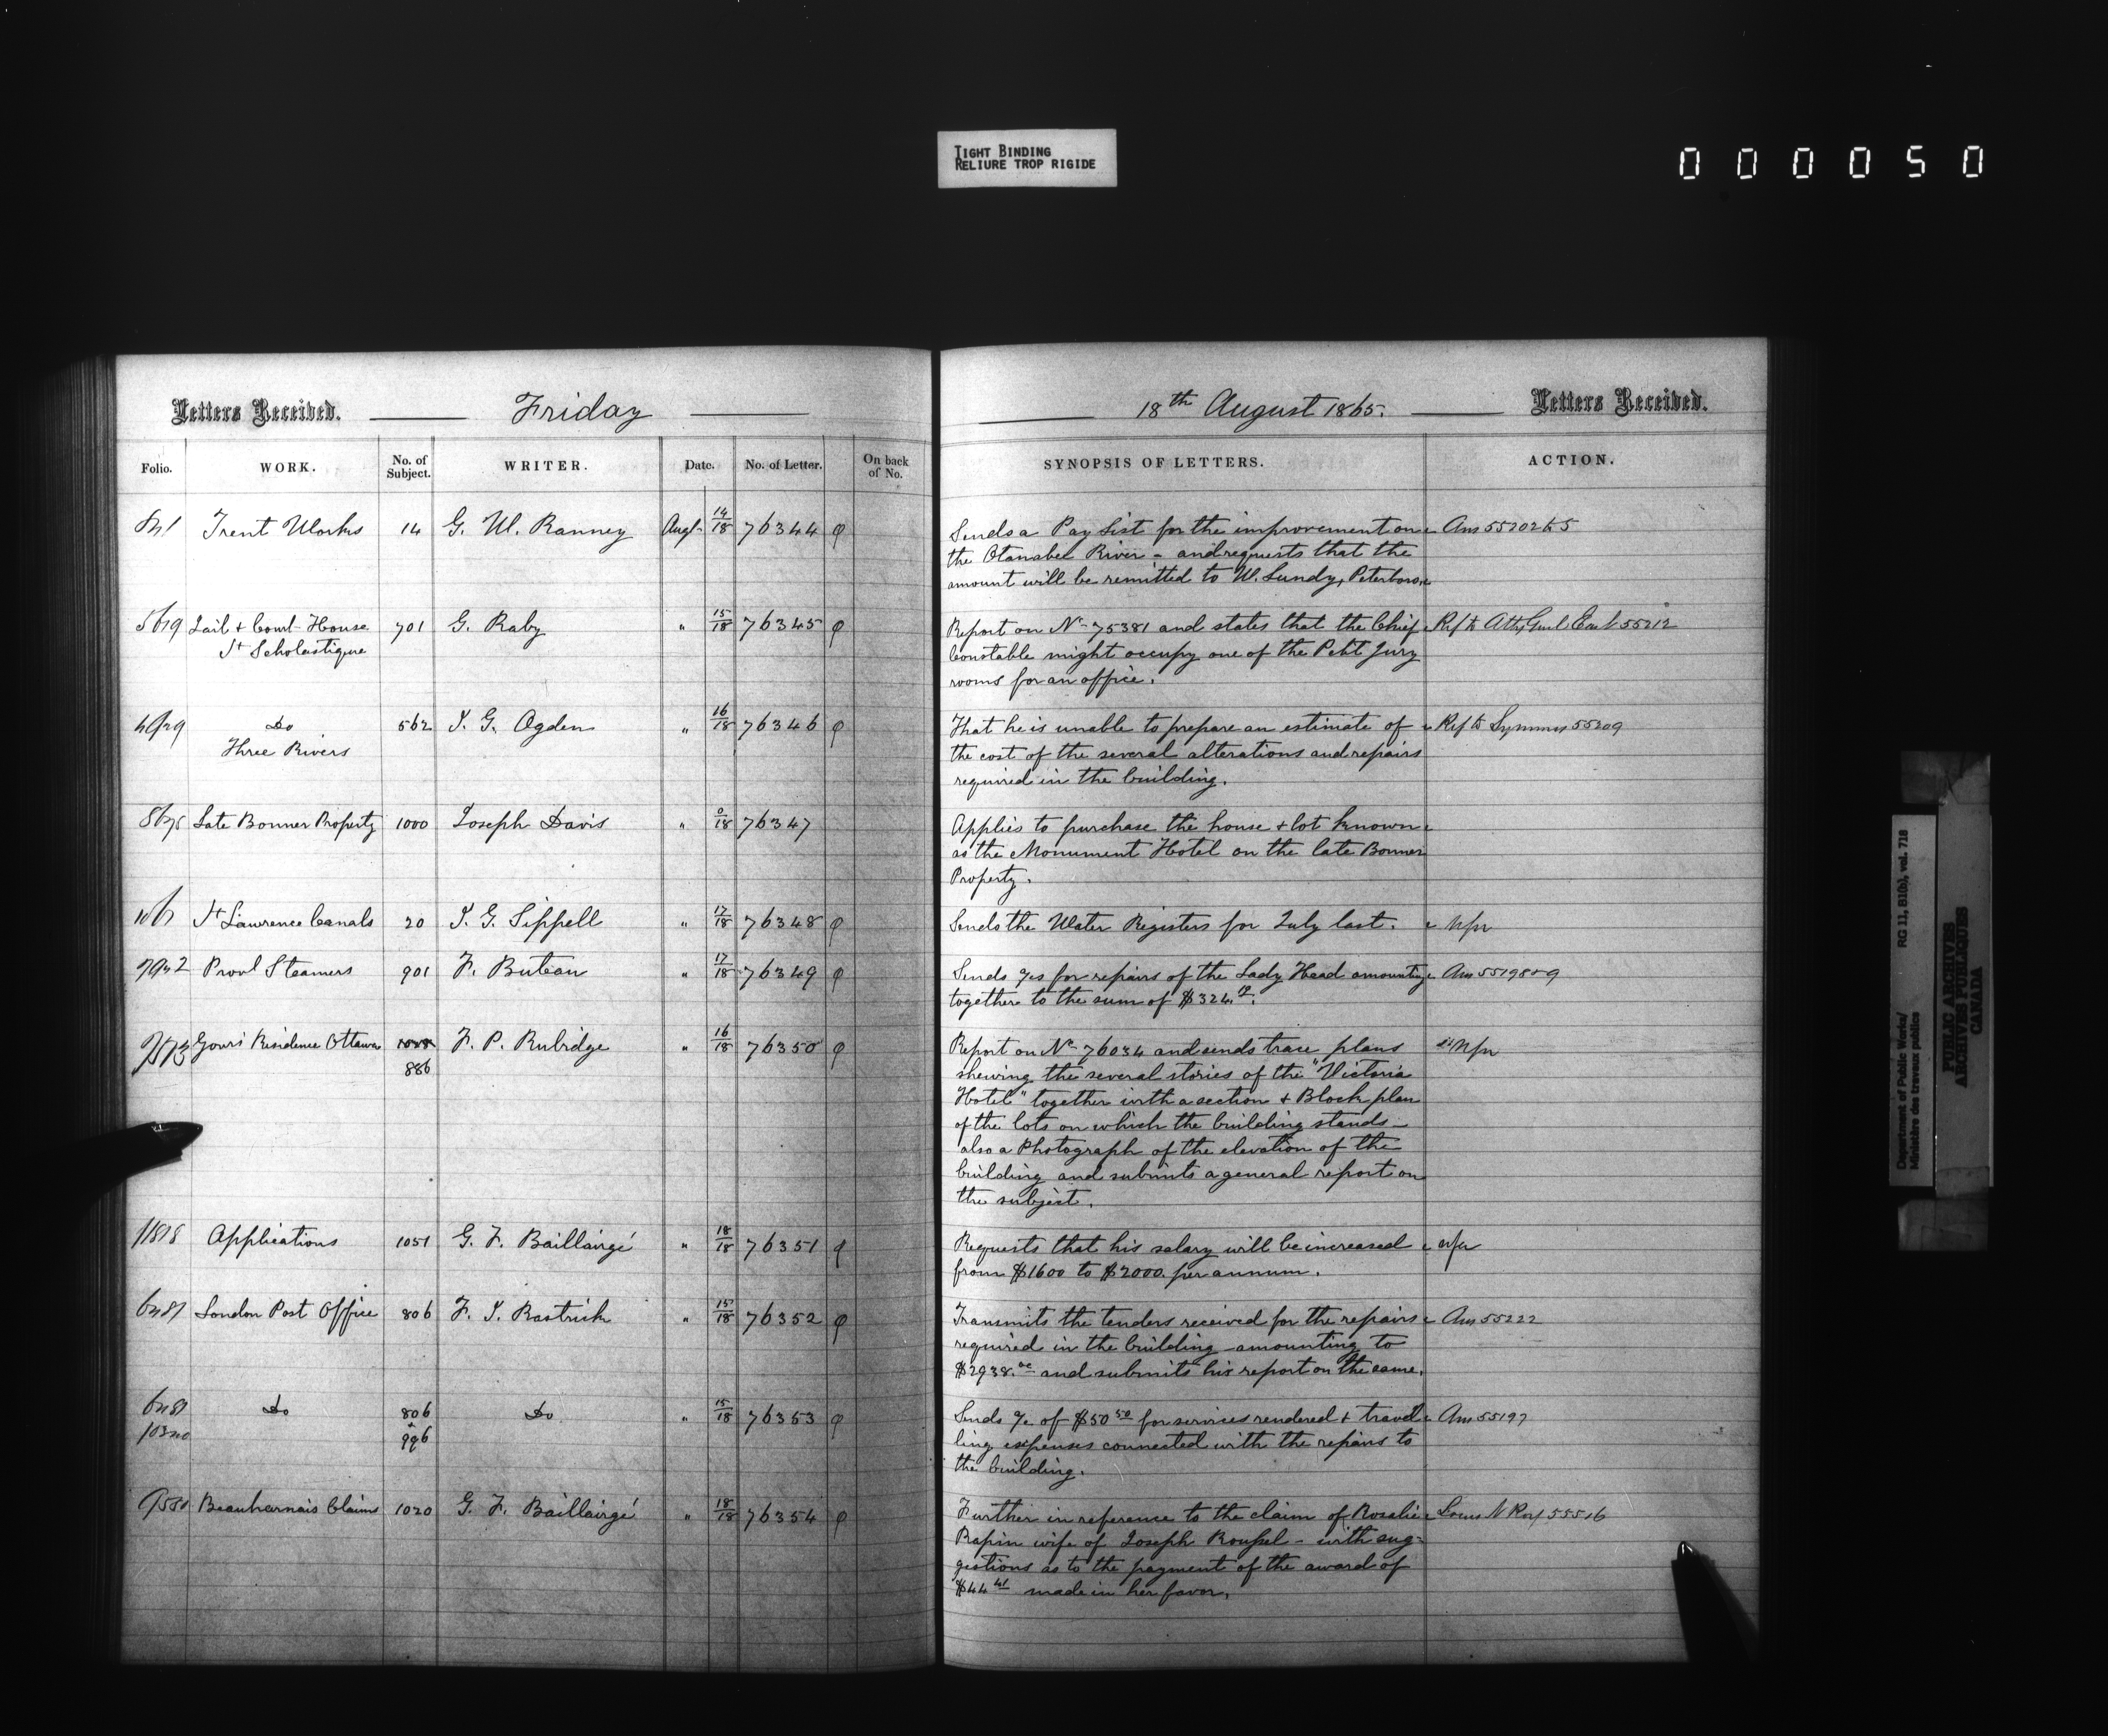 TIGHT BINDING
RELIURE TROP RIGIDE
000050
Letters Received. Friday
18th August 1865. Letters Received.
Folio. WORK. No. of Subject. WRITER. Date. No. of Letter. On back of No.
SYNOPSIS OF LETTERS. ACTION.
Trent Works 14 G. W. Ranney Augt 14/18 76344
Sends a Pay List for the improvement on Ans 55202
the Otanabee River - and requests that the
amount will be remitted to W. Lundy, Peterboro.
Jail + Court House 701 G. Raby " 15/18 76345
St Scholastique
Report on No 75381 and states that the Chief Ref to Atty Genl East 55212
Constable might occupy one of the Petit Jury
rooms for an office.
Do 562 I. G. Ogden " 16/18 76346
Three Rivers
That he is unable to prepare an estimate of Ref to Symmes 55209
the cost of the several alterations and repairs
required in the building.
Late Bonner Property 1000 Joseph Davis " 0/18 76347
Applies to purchase the house + lot known
as the Monument Hotel on the late Bonner
Property.
St Lawrence Canals 20 J. G. Sippell " 17/18 76348
Sends the Water Registers for July last.
Provl Steamers 901 F. Buteau " 17/18 76349
Sends a/cs for repairs of the Lady Head amounting
together to the sum of
Govrs Residence Ottawa F. P. Rubidge " 16/18 76350
886
Report on No 76034 and sends trace plans
shewing the several stories of the "Victoria
Hotel" together with a section + Block plan
of the lots on which the building stands -
also a Photograph of the elevation of the
building and submits a general report on
the subject.
Applications 1051 G. F. Baillairgé " 18/18 76351
Requests that his salary will be increased
from $1600 to $2000. per annum.
London Post Office 806 F. J. Rastrick " 15/18 76352
Transmits the tenders received for the repairs Ans 55222
required in the building amounting to
$2938.00 and submits his report on the same.
Do 806 Do " 15/18 76353
+
996
Sends a/c of $50 50 for services rendered + travel Ans 55197
ling expenses connected with the repairs to
the building.
Beauharnais Claims 1020 G. F. Baillairgé " 18/18 76354
Further in reference to the claim of Rosalie
Rapin wife of Joseph Roussel - with sug-
gestions as to the payment of the award of
$44 41 made in her favor.
Department of Public Works/ RG 11, B1(b), vol. 718
Ministère des travaux publics
PUBLIC ARCHIVES
ARCHIVES PUBLIQUES
CANADA